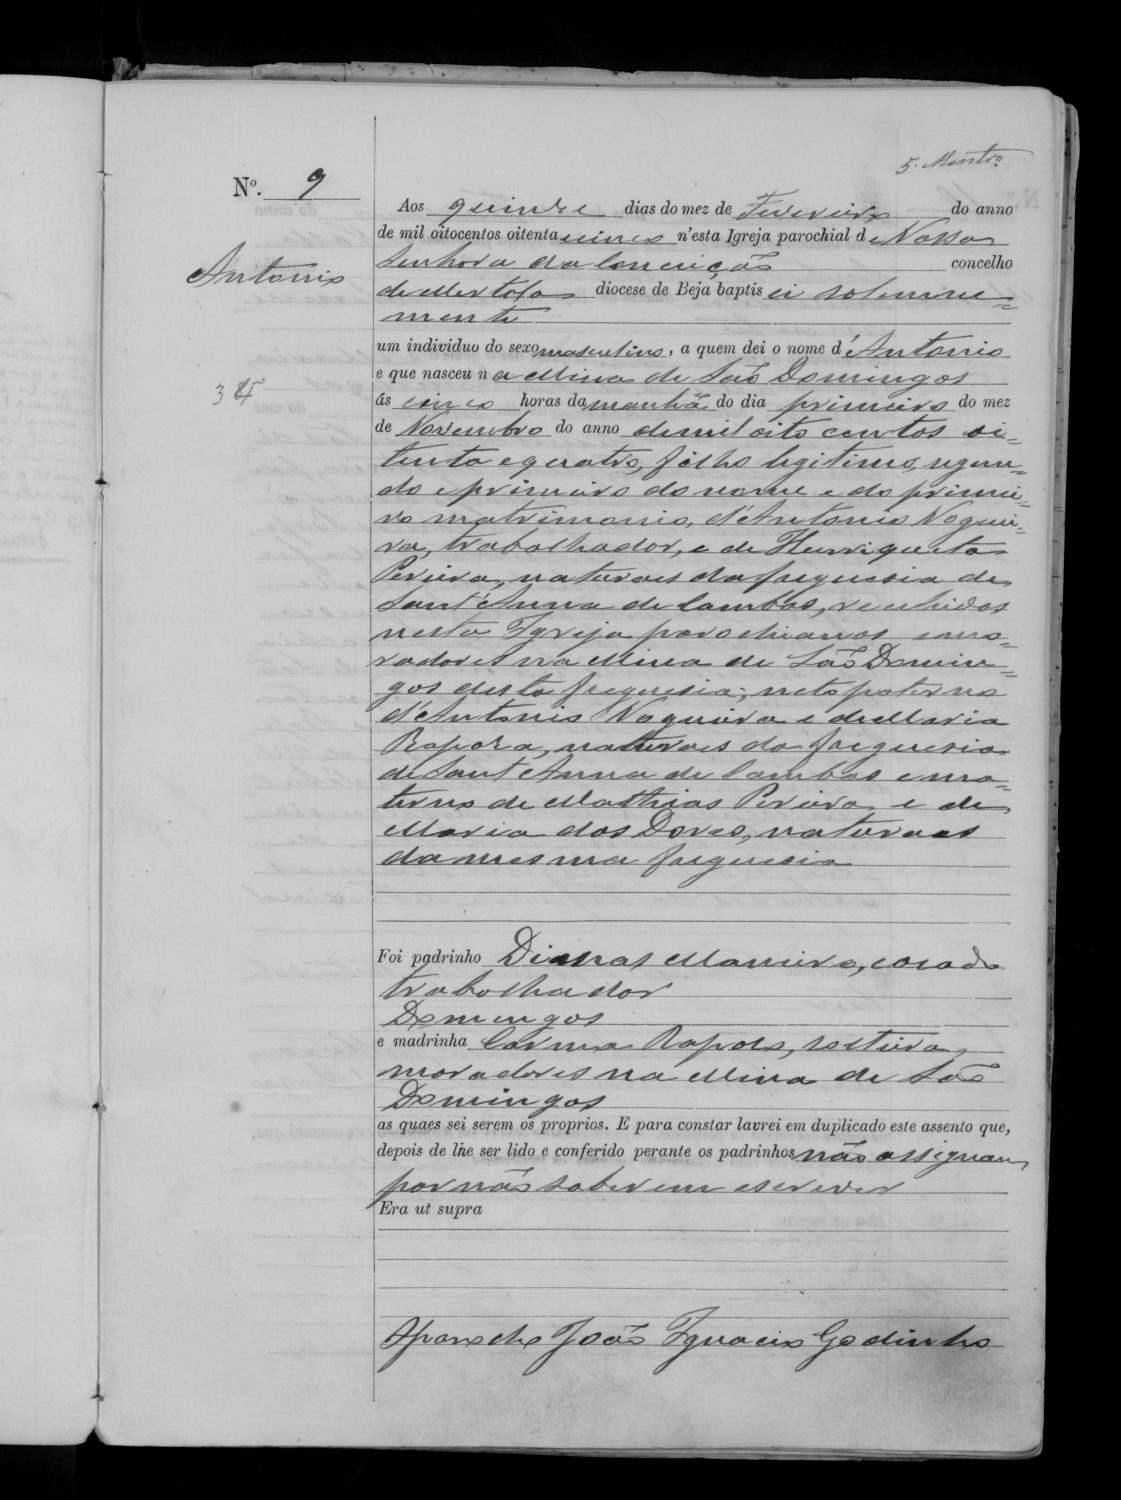 5. Montro
Nº. 9
Aos quinze dias do mez de Fevereiro do anno
de mil oitocentos oitenta e cinco n'esta Igreja parochial de Nossa
Senhora da Conceição concelho
de Mertola diocese de Beja baptisei solemne=
mente
Antonio
um individuo do sexo masculino, a quem dei o nome d'Antonio
e que nasceu na Mina de São Domingos
ás cinco horas da manhã do dia primeiro do mez
de Novembro do anno de mil oito centos oi=
tenta e quatro, filho legitimo, segun=
do e primeiro do nome e do primei=
ro matrimonio, d'Antonio Noguei=
ra, trabalhador, e de Henriqueta
Pereira, naturaes da freguesia de
Sant'Anna de Cambas, recebidos
nesta Igreja parochianos e mo=
radores na Mina de São Domin=
gos desta freguesia; neto paterno
d'Antonio Nogueira e de Maria
Rapoza, naturaes da freguesia
de Sant'Anna de Cambas e ma=
terno de Mathias Pereira e de
Maria das Dores, naturaes
da mesma freguesia
Foi padrinho Manuel, casado
trabalhador
Domingos
e madrinha Rapoza, solteira,
moradores na Mina de São
Domingos
as quaes sei serem os proprios. E para constar lavrei em duplicado este assento que,
depois de lhe ser lido e conferido perante os padrinhos não assignam
por não saberem escrever
Era ut supra
O parocho João Ignacio Godinho